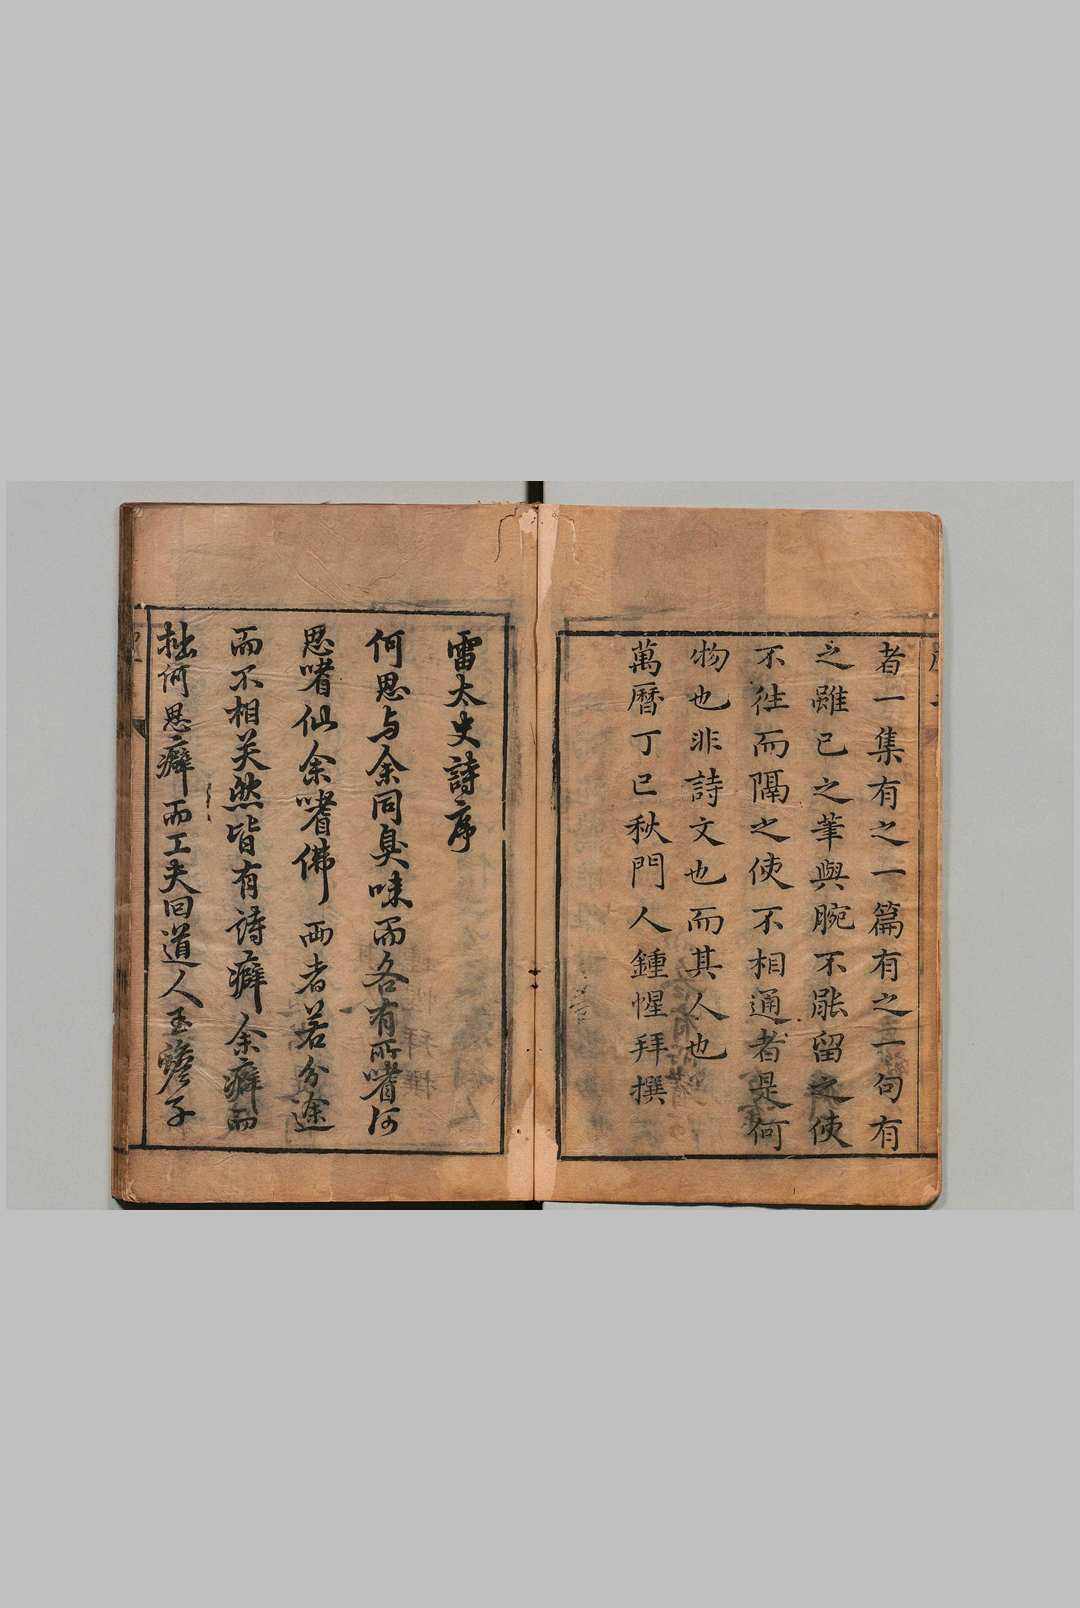 者一集有之一篇有之一句有
之雖已之筆與腕不能留之使
不徃而隔之使不相通者是何
物也非詩文也而其人也
萬曆丁巳秋門人鍾惺拜撰
雷太史詩序
何思与余同臭味而各有所嗜何
思嗜仙余嗜佛両者若分途
而不相关然皆有詩癖余癖而
拙何思癖而工夫回道人玉蟾子